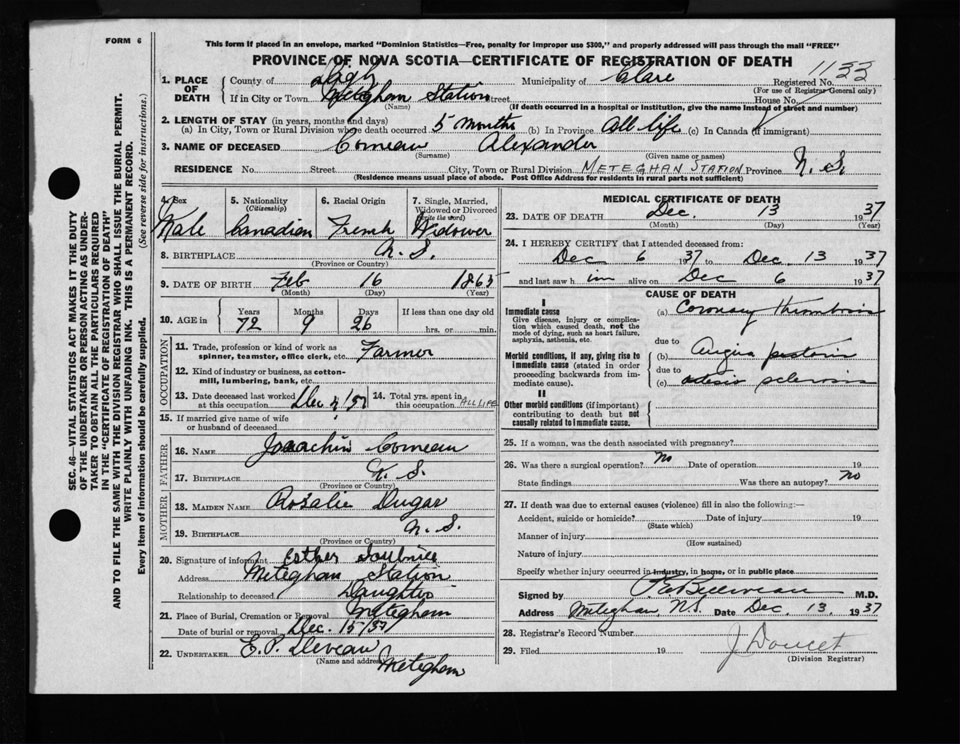 FORM 6
This form if placed in an envelope, marked "Dominion Statistics—Free, penalty for improper use $300," and properly addressed will pass through the mail "FREE"
PROVINCE OF NOVA SCOTIA—CERTIFICATE OF REGISTRATION OF DEATH
1133
1. PLACE OF DEATH
County of Digby Municipality of Clare Registered No.
(For use of Registrar General only)
If in City or Town Meteghan Station Street House No.
(Name) (If death occurred in a hospital or institution, give the name instead of street and number)
2. LENGTH OF STAY (in years, months and days)
(a) In City, Town or Rural Division where death occurred 5 months (b) In Province All life (c) In Canada (if immigrant)
3. NAME OF DECEASED Comeau Alexander
(Surname) (Given name or names)
RESIDENCE No. Street City, Town or Rural Division METEGHAN STATION Province N. S.
(Residence means usual place of abode. Post Office Address for residents in rural parts not sufficient)
4. Sex Male
5. Nationality (Citizenship) Canadian
6. Racial Origin French
7. Single, Married, Widowed or Divorced (write the word) Widower
8. BIRTHPLACE N. S.
(Province or Country)
9. DATE OF BIRTH Feb 16 1865
(Month) (Day) (Year)
10. AGE in Years Months Days If less than one day old
72 9 26 hrs. or min.
OCCUPATION
11. Trade, profession or kind of work as spinner, teamster, office clerk, etc. Farmer
12. Kind of industry or business, as cotton-mill, lumbering, bank, etc.
13. Date deceased last worked at this occupation Dec /37
14. Total yrs. spent in this occupation ALL LIFE
15. If married give name of wife or husband of deceased
FATHER
16. NAME Joachin Comeau
17. BIRTHPLACE N. S.
(Province or Country)
MOTHER
18. MAIDEN NAME Rosalie Dugas
19. BIRTHPLACE N. S.
(Province or Country)
20. Signature of informant Esther
Address Meteghan Station
Relationship to deceased Daughter
21. Place of Burial, Cremation or Removal Meteghan
Date of burial or removal Dec. 15/37
22. UNDERTAKER E. P. Deveau
(Name and address) Meteghan
MEDICAL CERTIFICATE OF DEATH
23. DATE OF DEATH Dec. 13 1937
(Month) (Day) (Year)
24. I HEREBY CERTIFY that I attended deceased from:
Dec 6 1937 to Dec. 13 1937
and last saw him alive on Dec 6 1937
CAUSE OF DEATH
I
Immediate cause
Give disease, injury or complication which caused death, not the mode of dying, such as heart failure, asphyxia, asthenia, etc.
(a) Coronary thrombosis
due to
Morbid conditions, if any, giving rise to immediate cause (stated in order proceeding backwards from immediate cause).
(b) Angina pectoris
due to
(c) arterio sclerosis
II
Other morbid conditions (if important) contributing to death but not causally related to immediate cause.
25. If a woman, was the death associated with pregnancy?
26. Was there a surgical operation? No Date of operation 19
State findings Was there an autopsy? No
27. If death was due to external causes (violence) fill in also the following:—
Accident, suicide or homicide? Date of injury 19
(State which)
Manner of injury
(How sustained)
Nature of injury
Specify whether injury occurred in industry, in home, or in public place
Signed by M.D.
Address Meteghan, N.S. Date Dec. 13, 1937
28. Registrar's Record Number
29. Filed 19 J Doucet
(Division Registrar)
SEC. 46—VITAL STATISTICS ACT MAKES IT THE DUTY
OF THE UNDERTAKER OR PERSON ACTING AS UNDER-
TAKER TO OBTAIN ALL THE PARTICULARS REQUIRED
IN THE "CERTIFICATE OF REGISTRATION OF DEATH"
AND TO FILE THE SAME WITH THE DIVISION REGISTRAR WHO SHALL ISSUE THE BURIAL PERMIT.
WRITE PLAINLY WITH UNFADING INK. THIS IS A PERMANENT RECORD.
Every item of information should be carefully supplied. (See reverse side for instructions.)